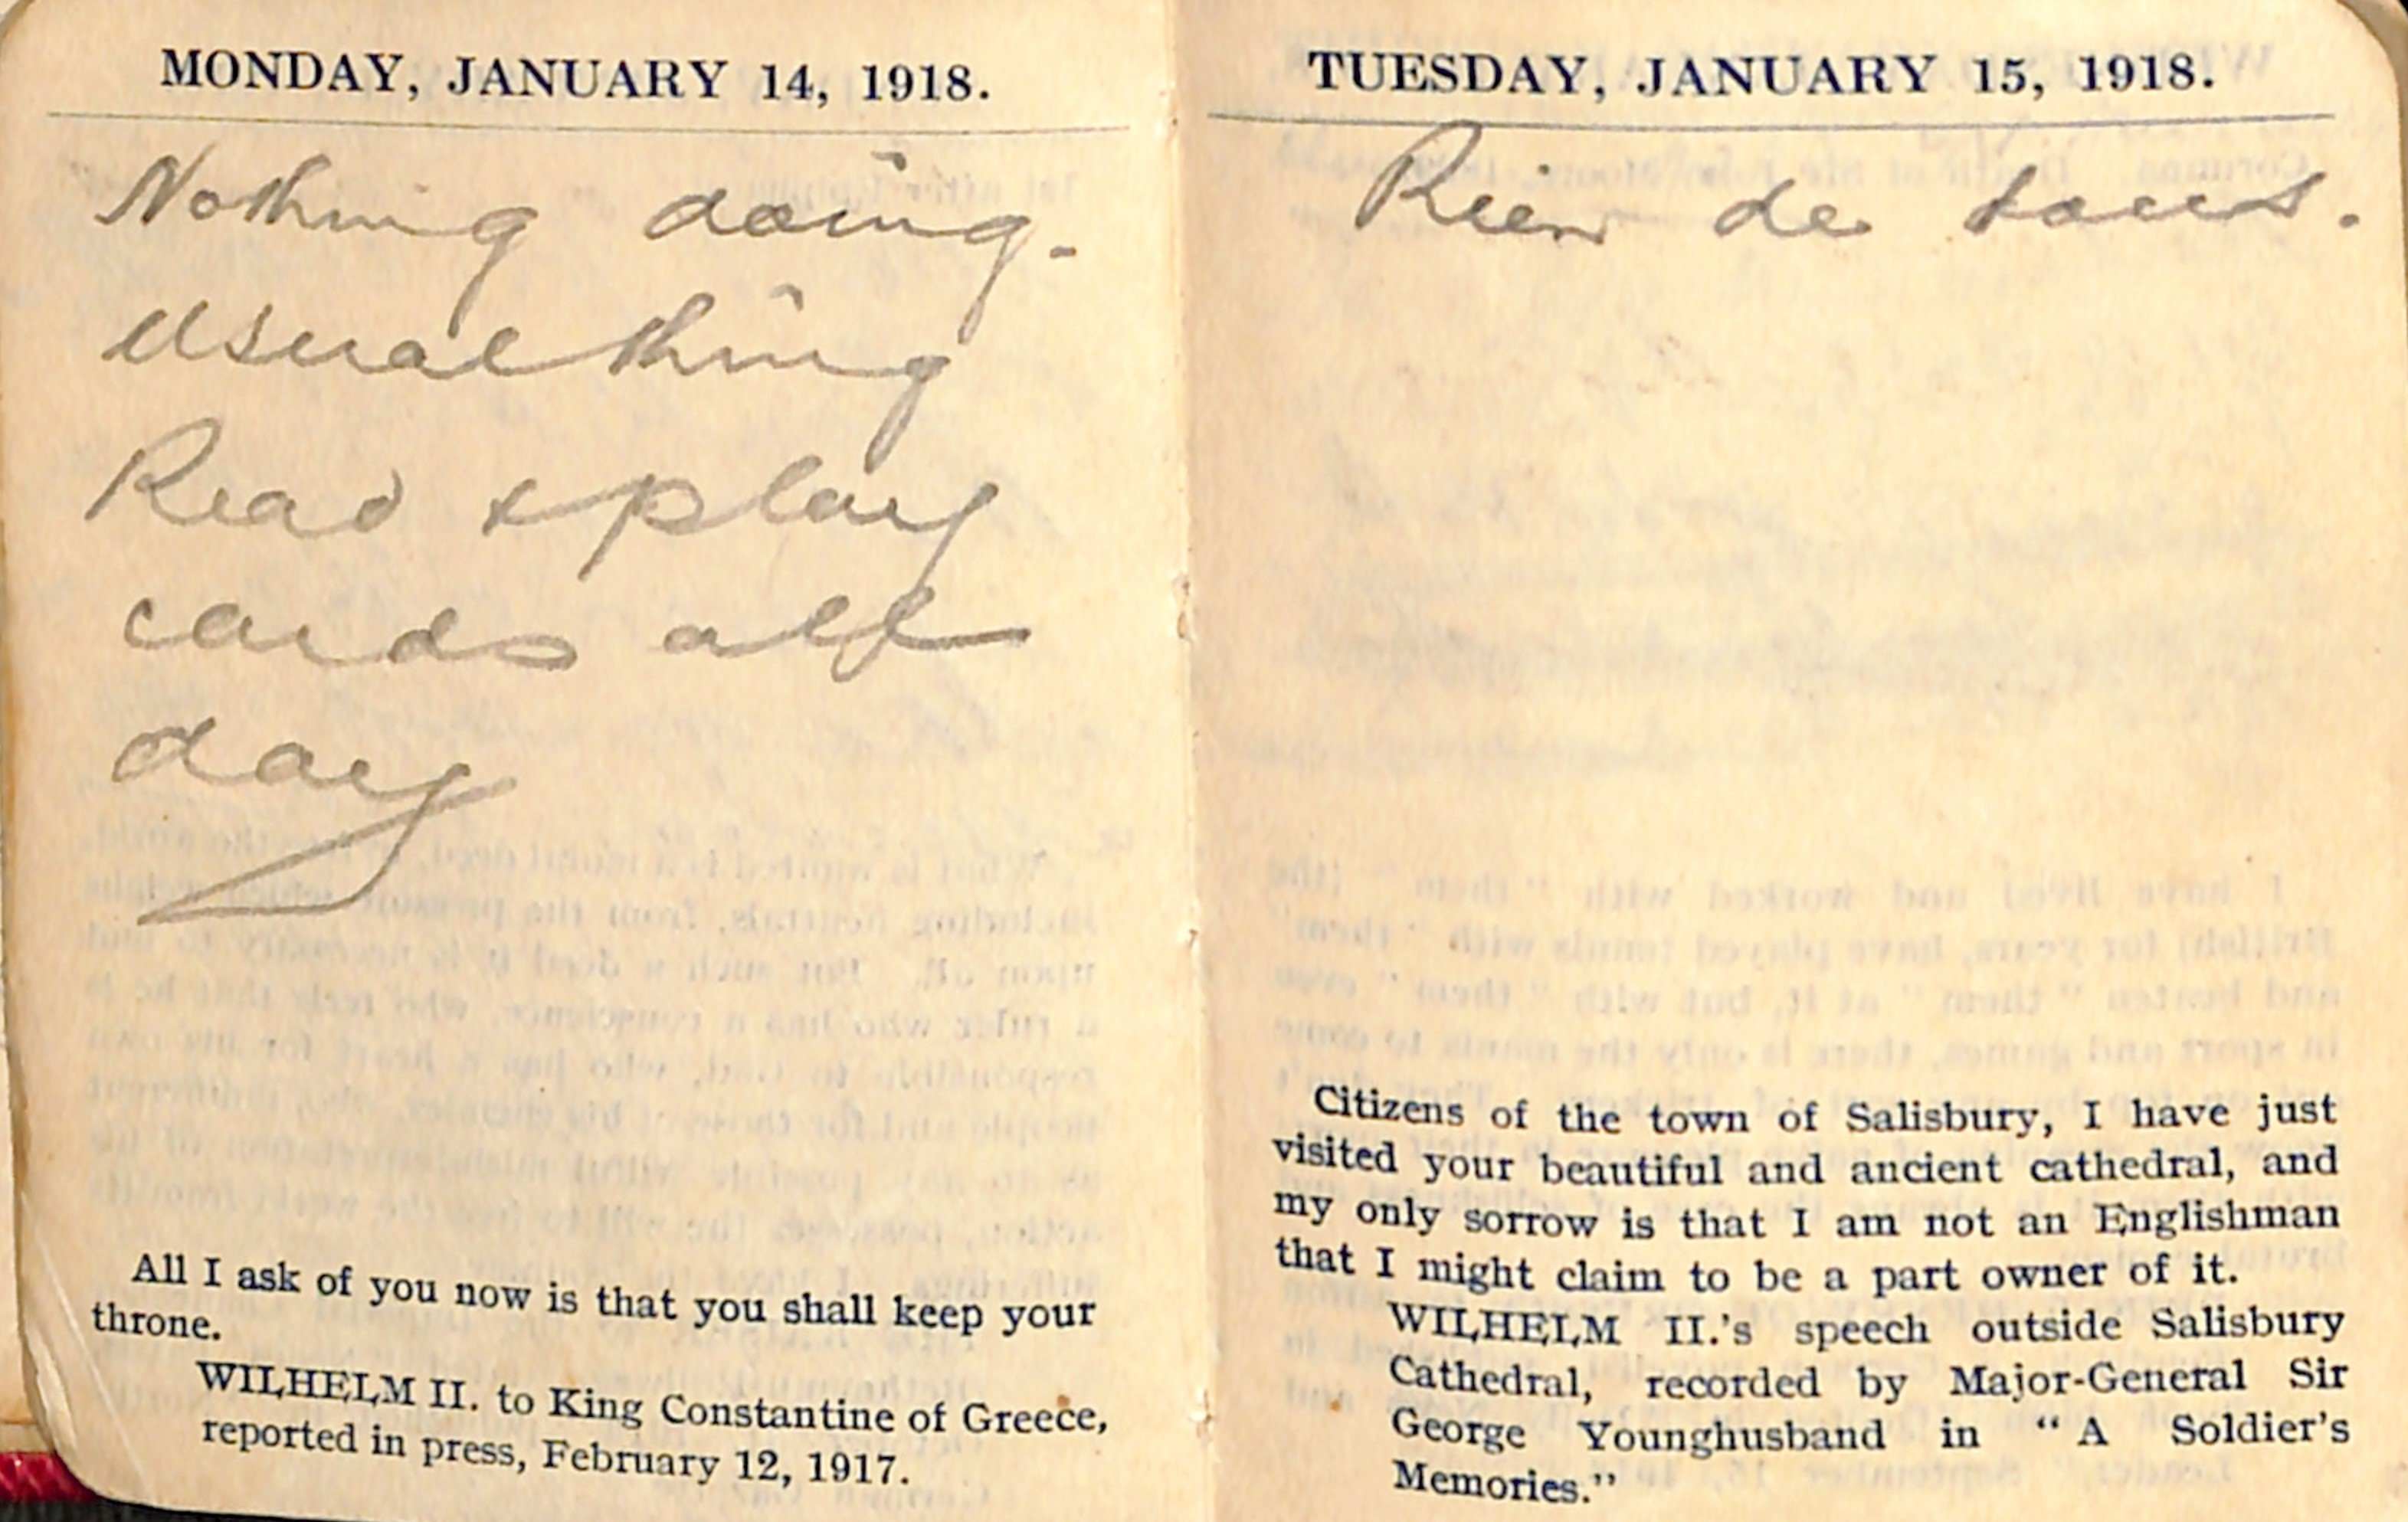 MONDAY, JANUARY 14, 1918.
Nothing doing.
Usual thing
Read & play
cards all
day
All I ask of you now is that you shall keep your
throne.
WILHELM II. to King Constantine of Greece,
reported in press, February 12, 1917.
TUESDAY, JANUARY 15, 1918.
Rien de tous.
Citizens of the town of Salisbury, I have just
visited your beautiful and ancient cathedral, and
my only sorrow is that I am not an Englishman
that I might claim to be a part owner of it.
WILHELM II.'s speech outside Salisbury
Cathedral, recorded by Major-General Sir
George Younghusband in "A Soldier's
Memories."